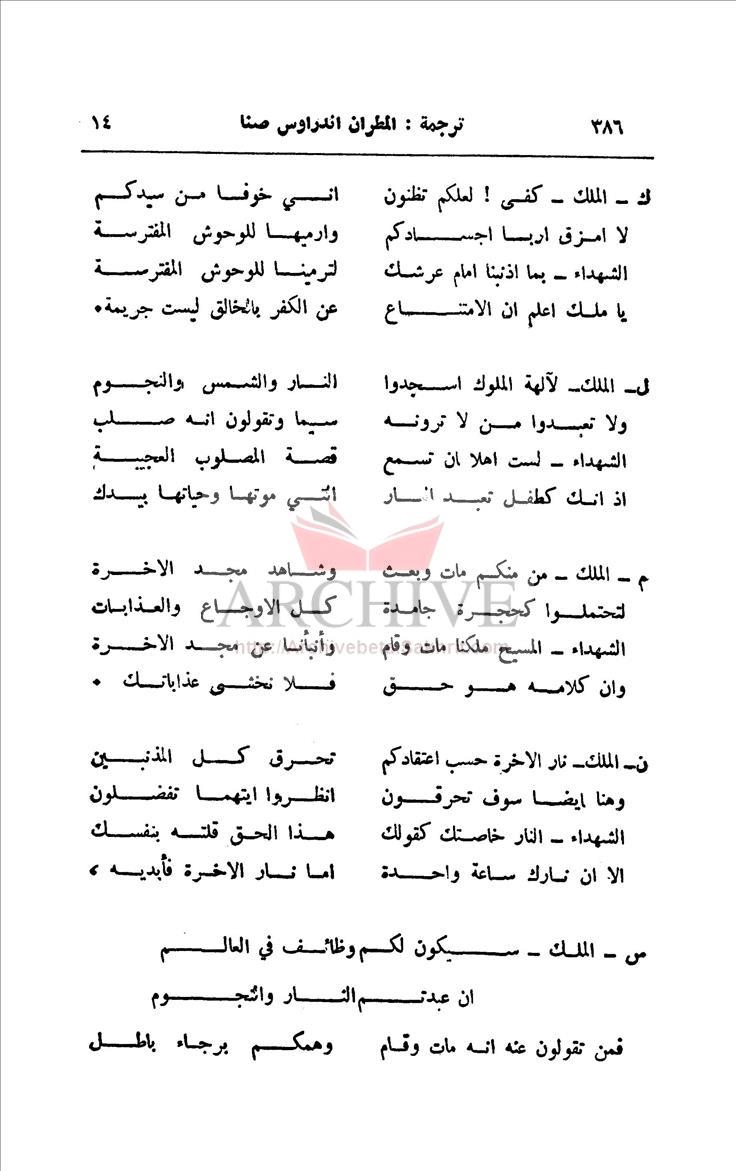 ٣٨٦ ترجمة : المطران اندراوس صنا ١٤
ك ـ الملك ـ كفى ! لعلكم تظنون انـي خوفا من سيدكم
لا امزق اربا اجسادكم وارميها للوحوش المفترسة
الشهداء ـ بما اذنبنا امام عرشك لترمينا للوحوش المفترسة
يا ملك اعلم ان الامتناع عن الكفر بالخالق ليست جريمة٠
ل ـ الملك ـ لآلهة الملوك اسجدوا النار والشمس والنجوم
ولا تعبدوا من لا ترونه سيما وتقولون انه صلب
الشهداء ـ لست اهلا ان تسمع قصة المصلوب العجيبة
اذ انك كطفل تعبد النار التي موتها وحياتها بيدك
م ـ الملك ـ من منكم مات وبعث وشاهد مجد الاخرة
لتحتملوا كحجرة جامدة كل الاوجاع والعذابات
الشهداء ـ المسيح ملكنا مات وقام وأنبأنا عن مجد الاخرة
وان كلامه هو حق فلا نخشى عذاباتك ٠
ن ـ الملك ـ نار الاخرة حسب اعتقادكم تحرق كل المذنبين
وهنا ايضا سوف تحرقون انظروا ايتهما تفضلون
الشهداء ـ النار خاصتك كقولك هذا الحق قلته بنفسك
الا ان نارك ساعة واحدة اما نار الاخرة فأبديه ،
س ـ الملك ـ سيكون لكم وظائف في العالم
ان عبدتم النار والنجوم
فمن تقولون عنه انه مات وقام وهمكم برجاء باطل
ARCHIVE